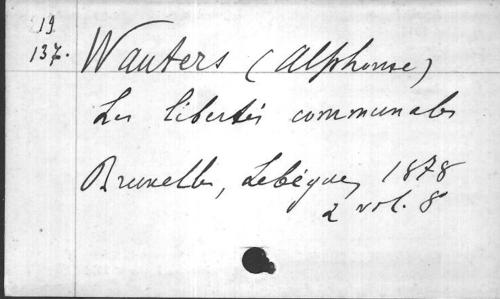 19
137.
Wauters (Alphonse)
Les libertés communales
Bruxelles, Lebègue, 1878
2 vol. 8°